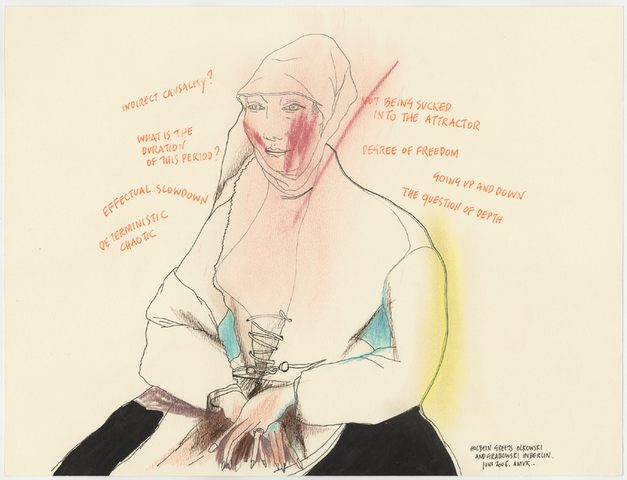 INDIRECT CAUSALITY?
WHAT IS THE
DURATION
OF THIS PERIOD?
EFFECTUAL SLOWDOWN
DETERMINISTIC
CHAOTIC
NOT BEING SUCKED
INTO THE ATTRACTOR
DEGREE OF FREEDOM
GOING UP AND DOWN
THE QUESTION OF DEPTH
HOLBEIN GREETS OLKOWSKI
AND GRABOWSKI IN BERLIN.
JUNI 2006. AMVK.